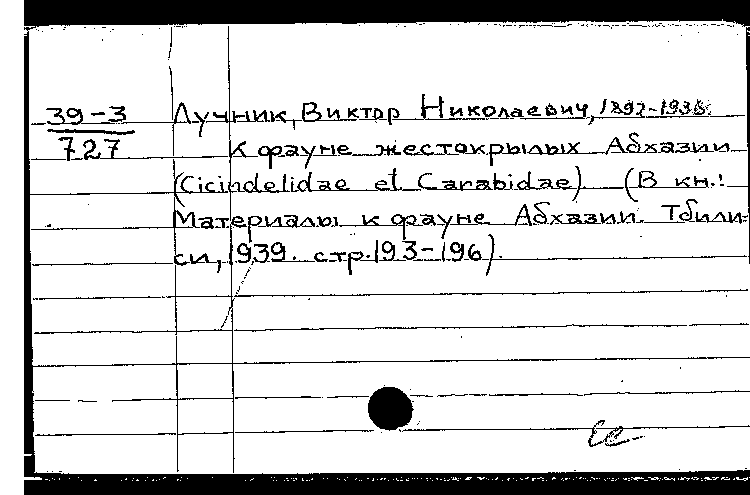 39-3
727
Лучник, Виктор Николаевич, 1892-1936.
К фауне жестокрылых Абхазии
(Cicindelidae et Carabidae) (В кн.:
Материалы к фауне Абхазии. Тбили-
си, 1939. стр. 193-196).